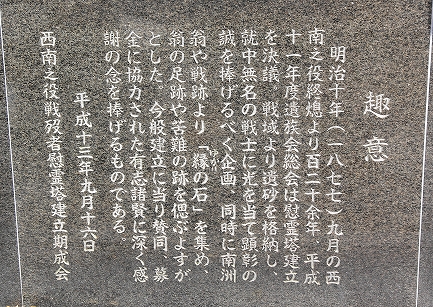 趣意
明治十年(一八七七)九月の西
南之役終熄より百二十余年、平成
十一年度遺族会総会は慰霊塔建立
を決議。戦域より遺砂を格納し、
就中無名の戦士に光を当て顕彰の
誠を捧げるべく企画、同時に南洲
翁や戦跡より「縁の石」を集め、
ゆかり
翁の足跡や苦難の跡を偲ぶよすが
とした。今般建立に当り賛同、募
金に協力された有志諸賢に深く感
謝の念を捧げるものである。
平成十三年九月十六日
西南之役戦歿者慰霊塔建立期成会